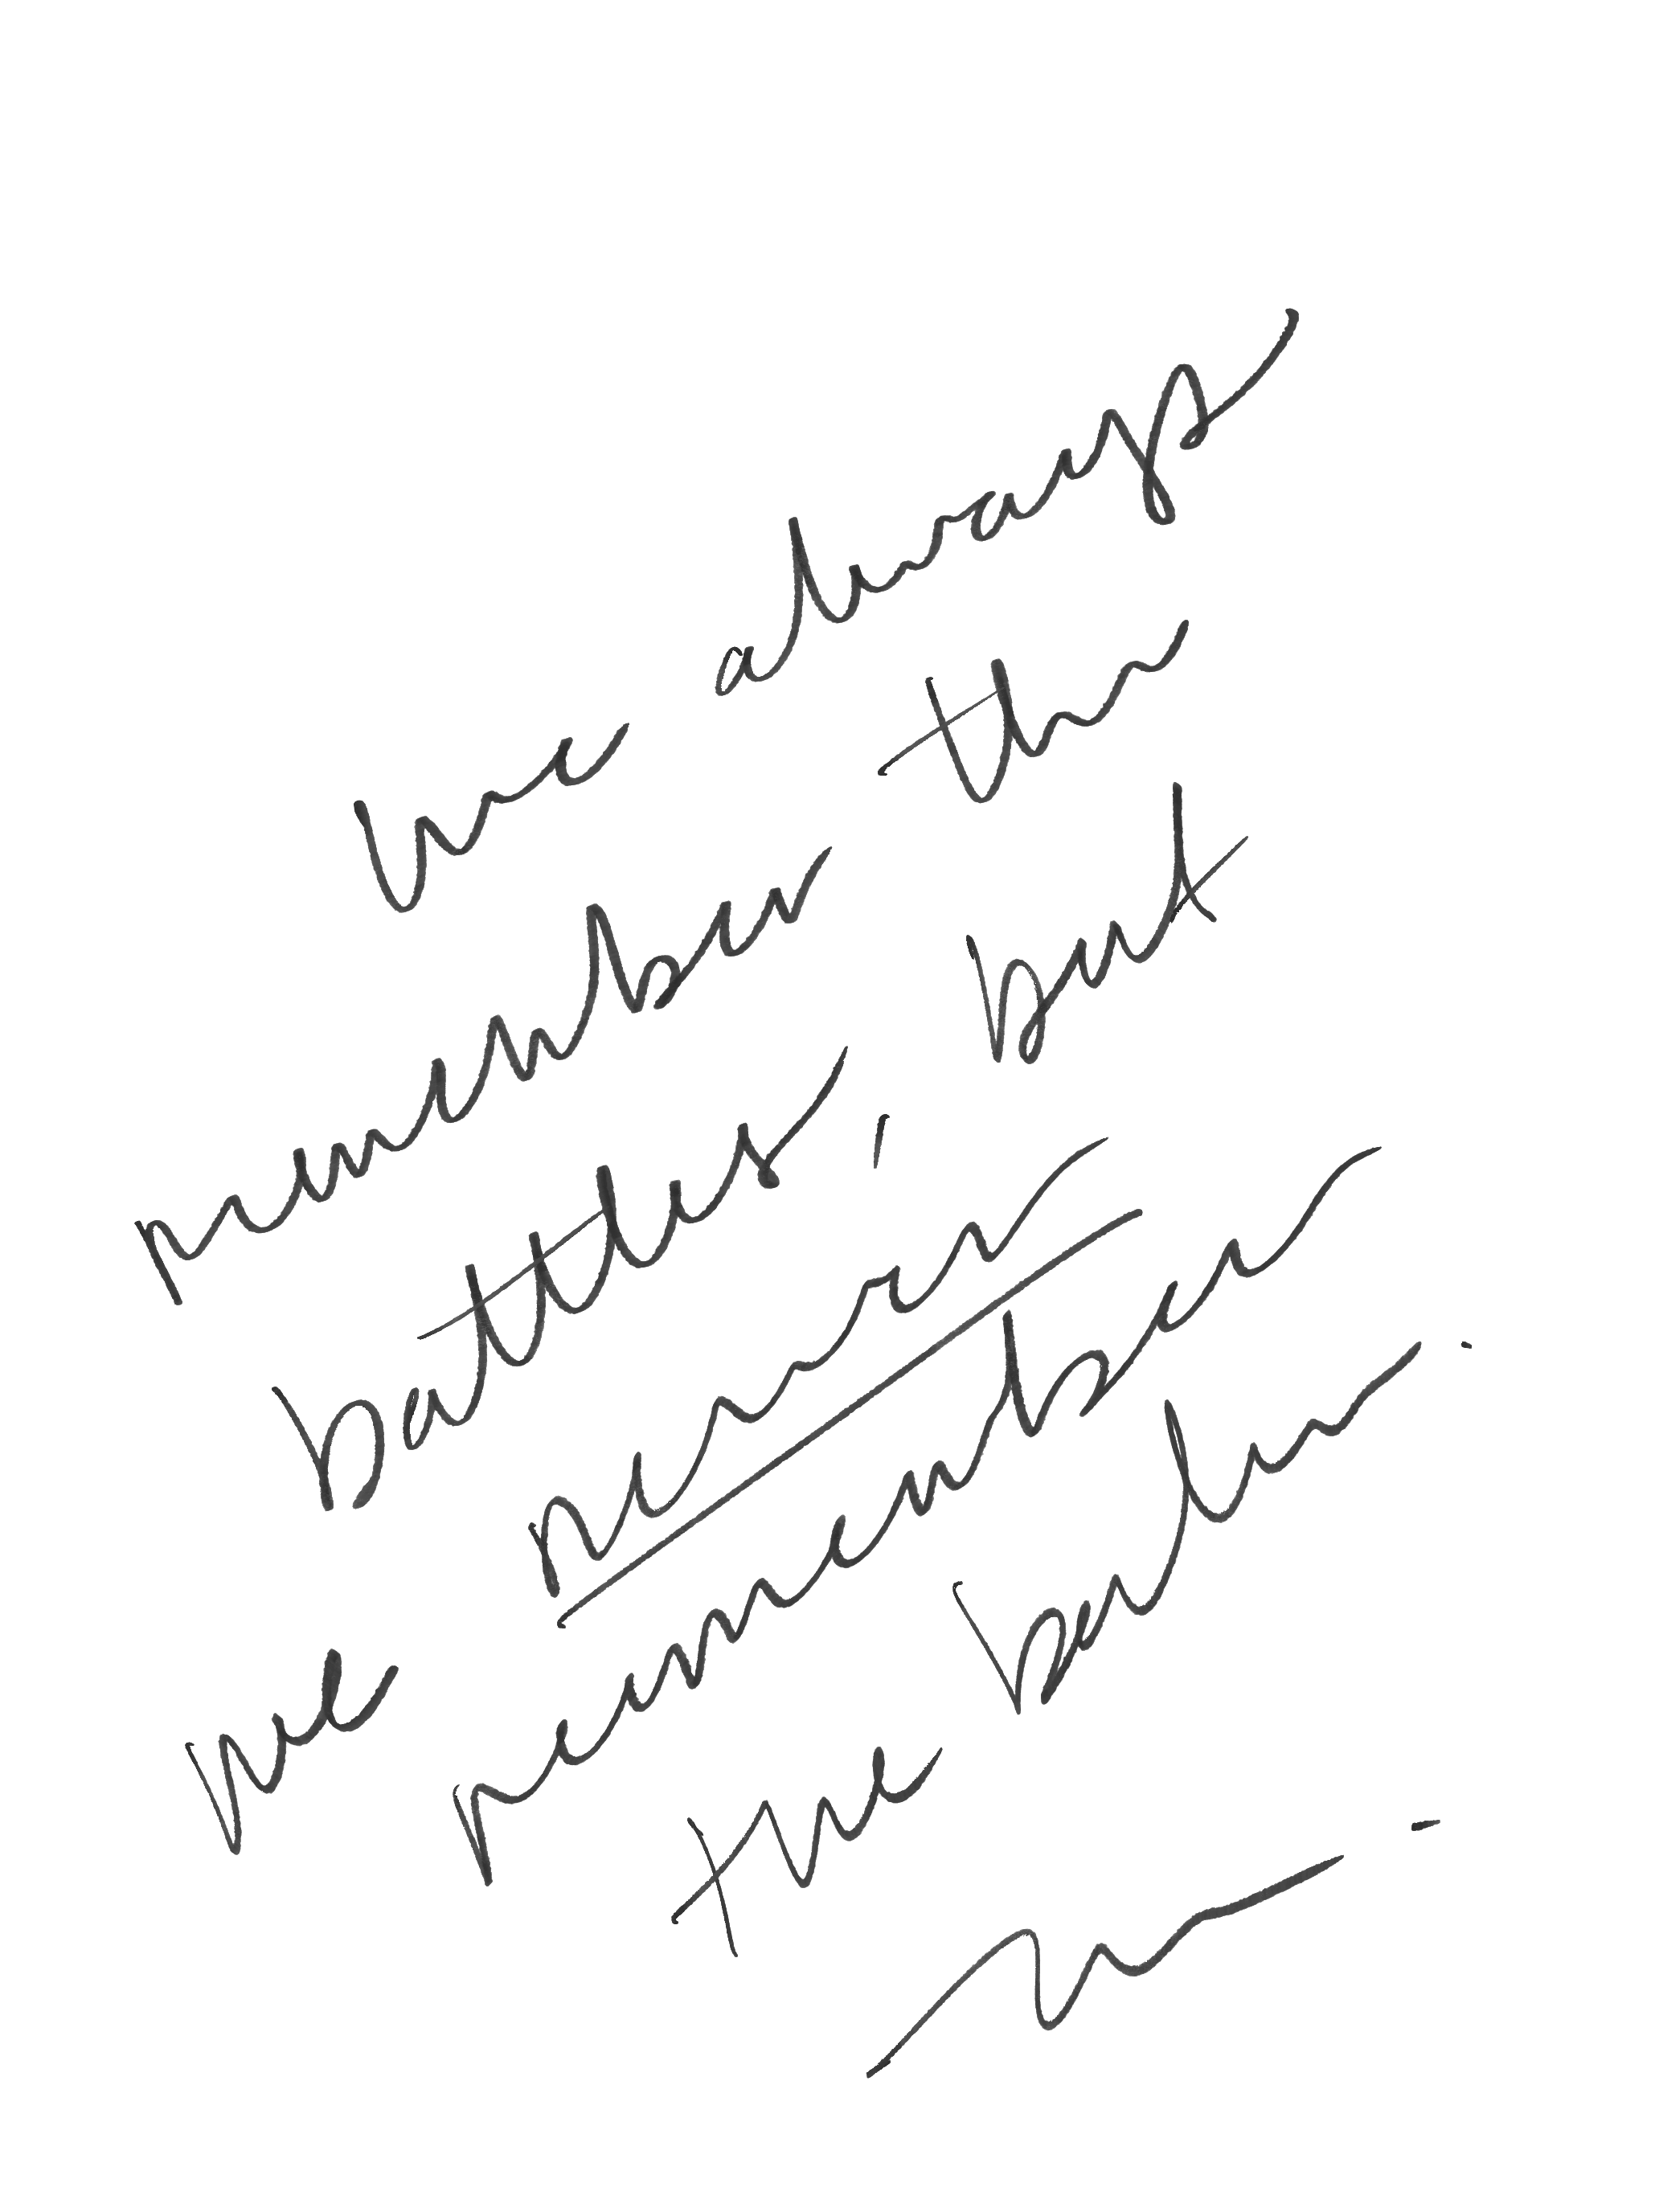 We always
remember the
battles, but
we never
remember
the